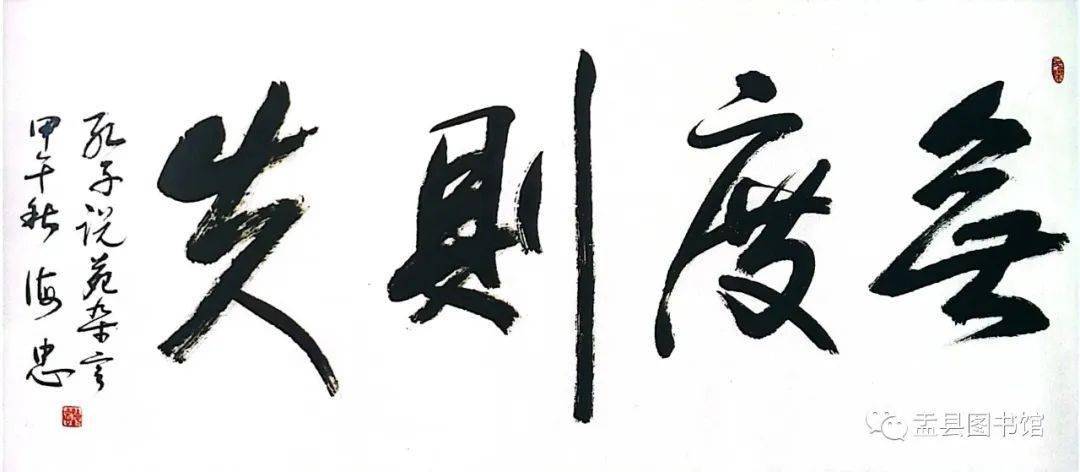 無度則失
孔子說苑杂言
甲午秋 海忠
盂县图书馆